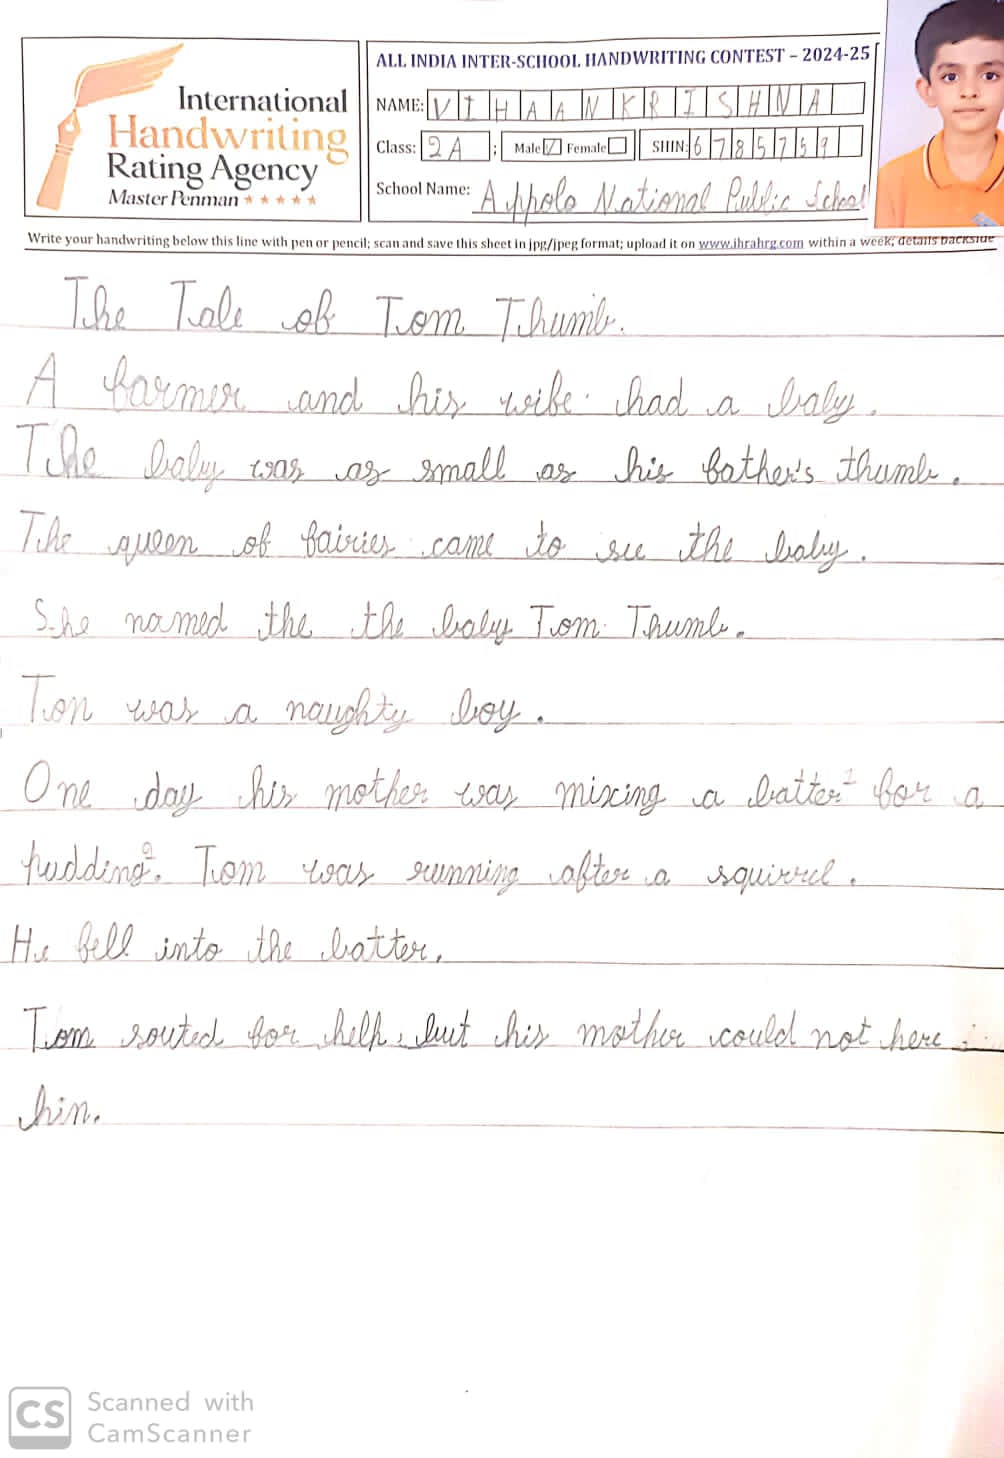 ALL INDIA INTER-SCHOOL HANDWRITING CONTEST – 2024-25
International
Handwriting
Rating Agency
Master Penman ★★★★★
NAME: VIHAAN KRISHNA
Class: 2A ; Male ☑ Female ☐ SHIN: 6785759
School Name: Appolo National Public School
Write your handwriting below this line with pen or pencil; scan and save this sheet in jpg/jpeg format; upload it on www.ihrahrg.com within a week; details backside
The Tale of Tom Thumb.
A farmer and his wife had a baby.
The baby was as small as his father's thumb.
The queen of fairies came to see the baby.
She named the the baby Tom Thumb.
Ton was a naughty boy.
One day his mother was mixing a batter for a
pudding. Tom was running after a squirrel.
He fell into the batter.
Tom souted for help, but his mother could not here
hin.
CS Scanned with
CamScanner